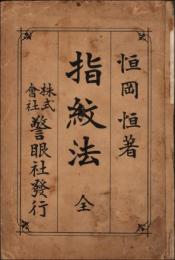 恒岡恒著
指紋法 全
株式會社 警眼社發行